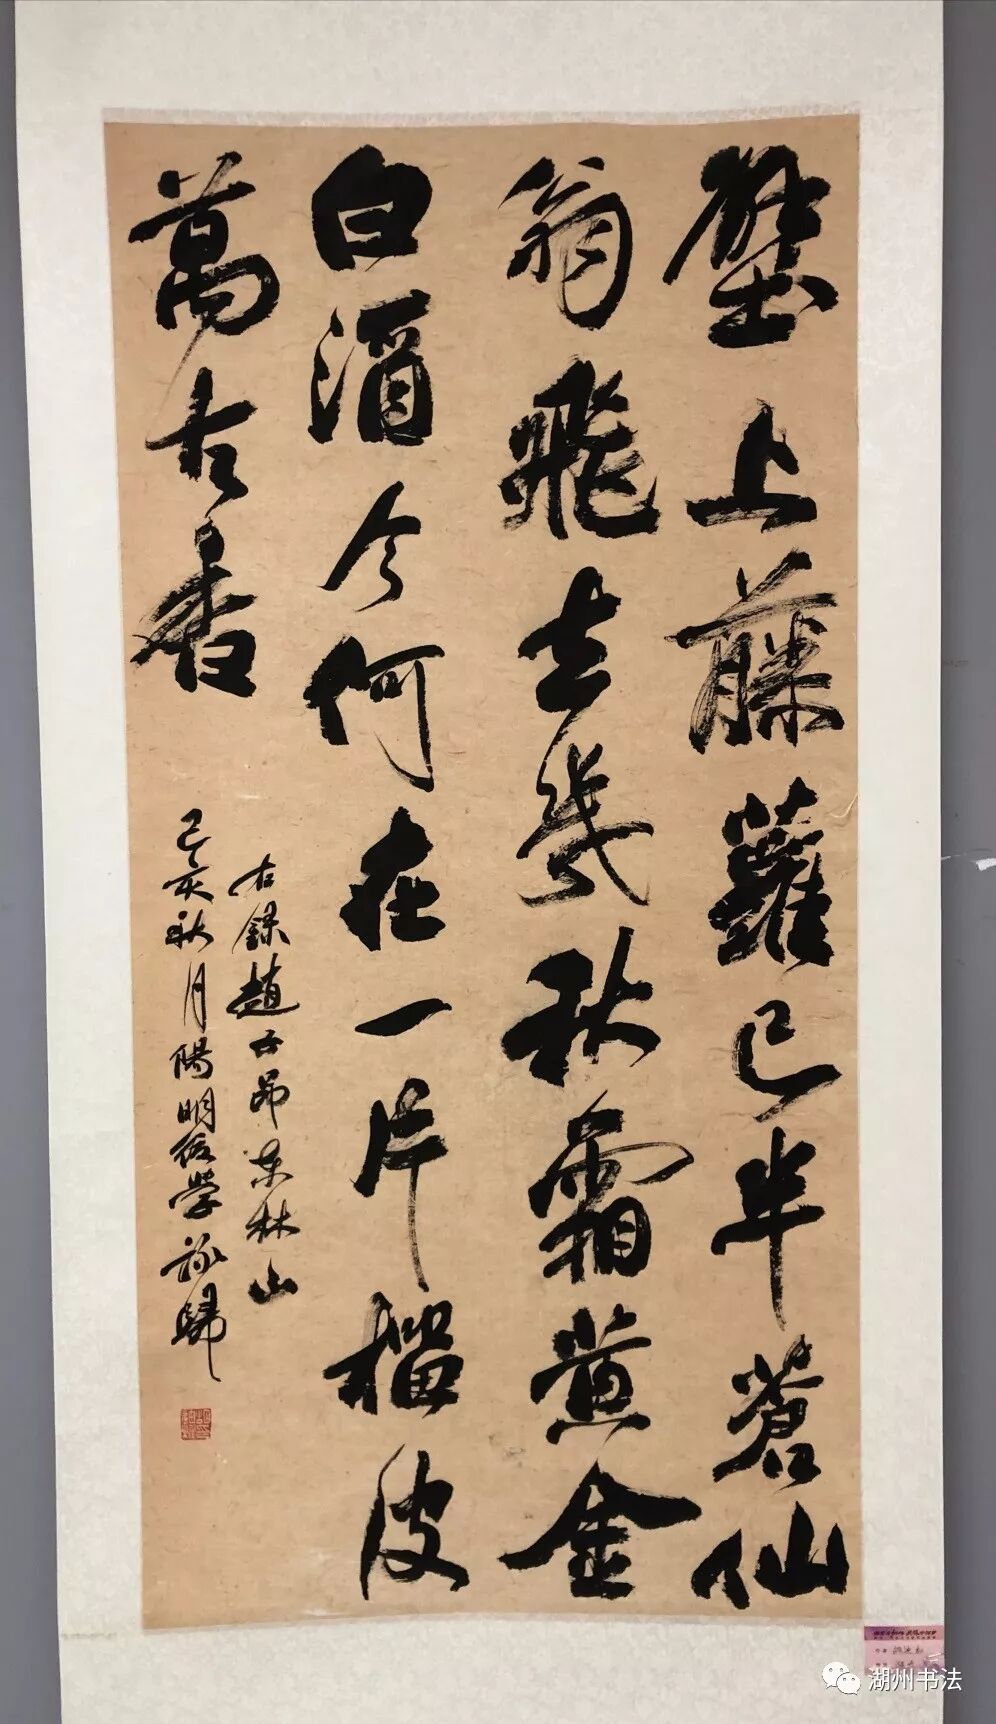 壁上藤蘿已半蒼仙
翁飛去幾秋霜黃金
白酒今何在一片榴皮
萬古香
右錄趙子昂東林山
己亥秋月陽明後學詠歸
湖州书法